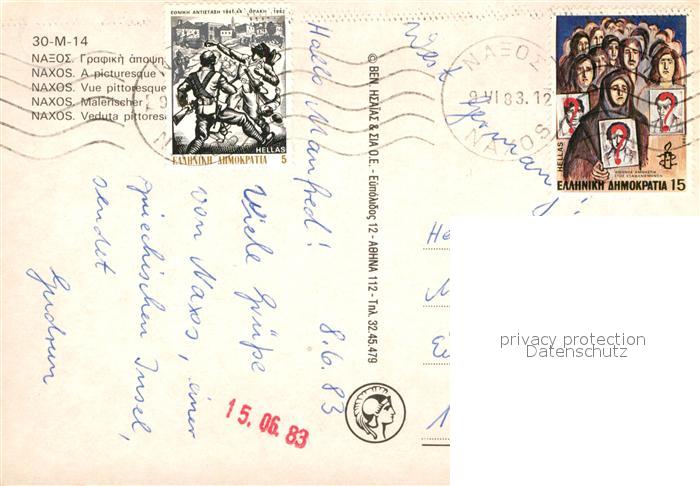 30-M-14
ΝΑΞΟΣ. Γραφική άποψη
NAXOS. A picturesque
NAXOS. Vue pittores
NAXOS. Malerischer
NAXOS. Veduta pittores
ΕΘΝΙΚΗ ΑΝΤΙΣΤΑΣΗ 1941-44 ΘΡΑΚΗ 1982
HELLAS
ΕΛΛΗΝΙΚΗ ΔΗΜΟΚΡΑΤΙΑ 5
ΝΑΞΟΣ
9 VI 83.12
NAXOS
HELLAS
ΕΛΛΗΝΙΚΗ ΔΗΜΟΚΡΑΤΙΑ 15
West Germany
Hallo Manfred! 8.6.83
Viele Grüße
von Naxos, einer
griechischen Insel,
sendet
Gudrun
© ΒΕΝ. ΗΣΑΪΑΣ & ΣΙΑ Ο.Ε. - Ευπόλιδος 12 - ΑΘΗΝΑ 112 - Τηλ. 32.45.479
15.06.83
privacy protection
Datenschutz